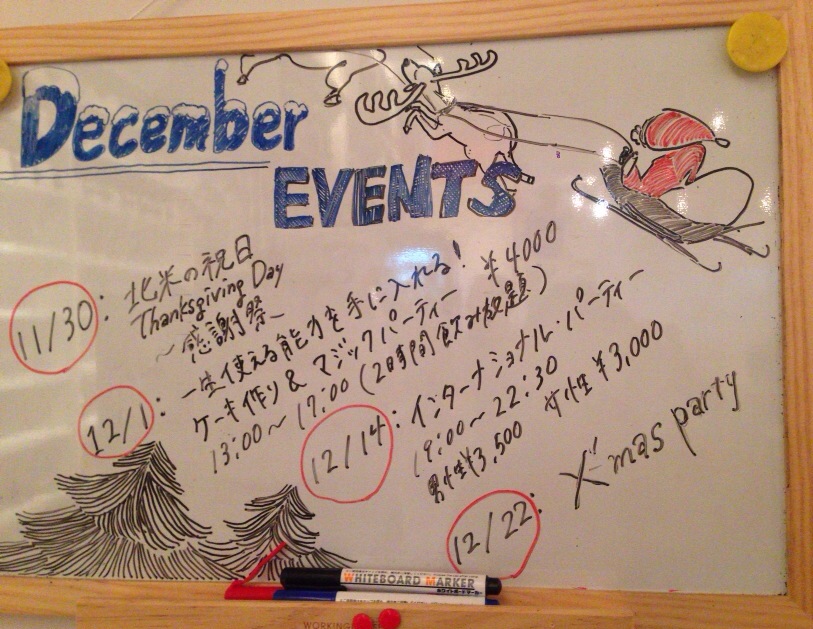 December
EVENTS
11/30:
北米の祝日
Thanksgiving Day
～感謝祭～
12/1:
一生使える能力を手に入れる!
ケーキ作り & マジックパーティー ¥4000
13:00～17:00 (2時間飲み放題)
12/14:
インターナショナル・パーティー
19:00～22:30
男性¥3,500 女性¥3,000
12/22:
X'mas party
WHITEBOARD MARKER
ホワイトボードマーカー
WORKING